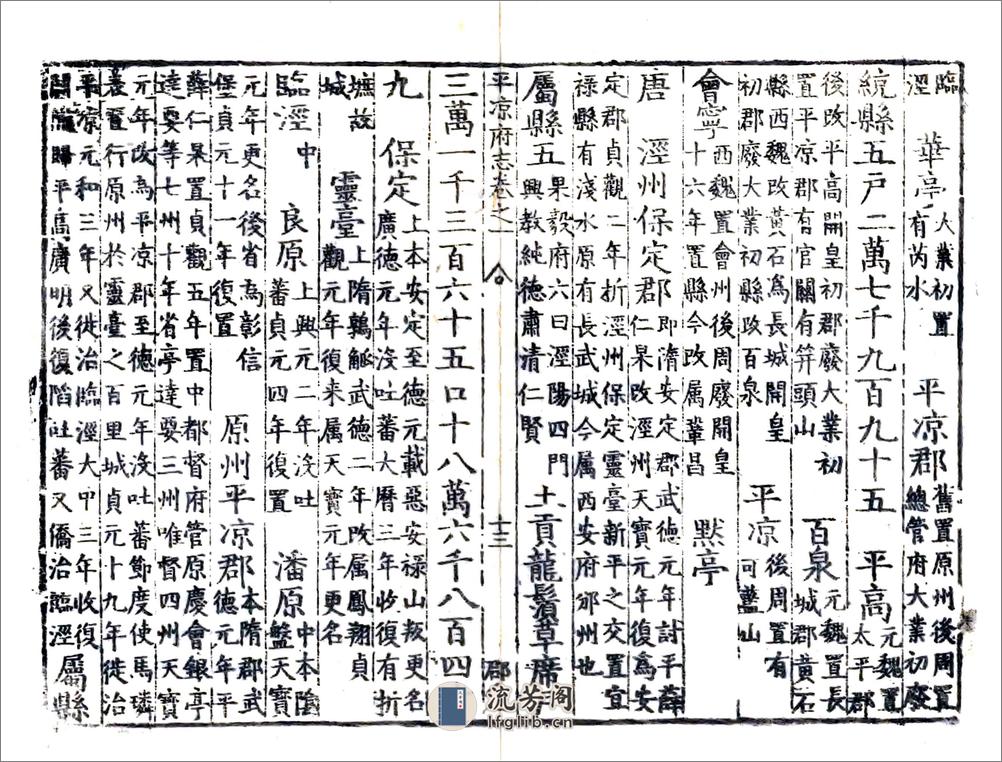 臨涇 華亭 大業初置有芮水 平凉郡 舊置原州後周置總管府大業初廢
統縣五戶二萬七千九百九十五 平高 元魏置太平郡
後改平高開皇初郡廢大業初置平凉郡有官關有笄頭山 百泉 元魏置長城郡黃石
縣西魏改黃石爲長城開皇初郡廢大業初縣改百泉 平凉 後周置有可藍山
會寧 西魏置會州後周廢開皇十六年置縣今改属鞏昌 默亭
唐 涇州保定郡 即隋安定郡武德元年討平薛仁杲改涇州天寶元年復為安
定郡貞觀二年折涇州保定靈臺新平之交置宜祿縣有淺水原有長武城今属西安府邠州也
屬縣五 果毅府六曰涇陽四門興教純德肅清仁賢 土貢龍鬚草席
平凉府志卷之一 十三 郡
三萬一千三百六十五口十八萬六千八百四
九 保定 上本安定至德元載惡安禄山叛更名廣德元年沒吐蕃大曆三年收復有折
墌故城 靈臺 上隋鶉觚武德二年改属鳳翔貞觀元年復来属天寶元年更名
臨涇 中 良原 上興元二年沒吐蕃貞元四年復置 潘原 中本陰盤天寶
元年更名後省為彰信堡貞元十一年復置 原州平凉郡 本隋郡武德元年平
薛仁杲置貞觀五年置中都督府管原慶會銀亭達要等七州十年省亭達要三州唯督四州天寶
元年改為平凉郡至德元年沒吐蕃節度使馬璘表置行原州於靈臺之百里城貞元十九年徙治
平凉元和三年又徙治臨涇大甲三年收復關隴歸平高廣明後復陷吐蕃又僑治臨涇 屬縣
流芳阁
lfglib.cn